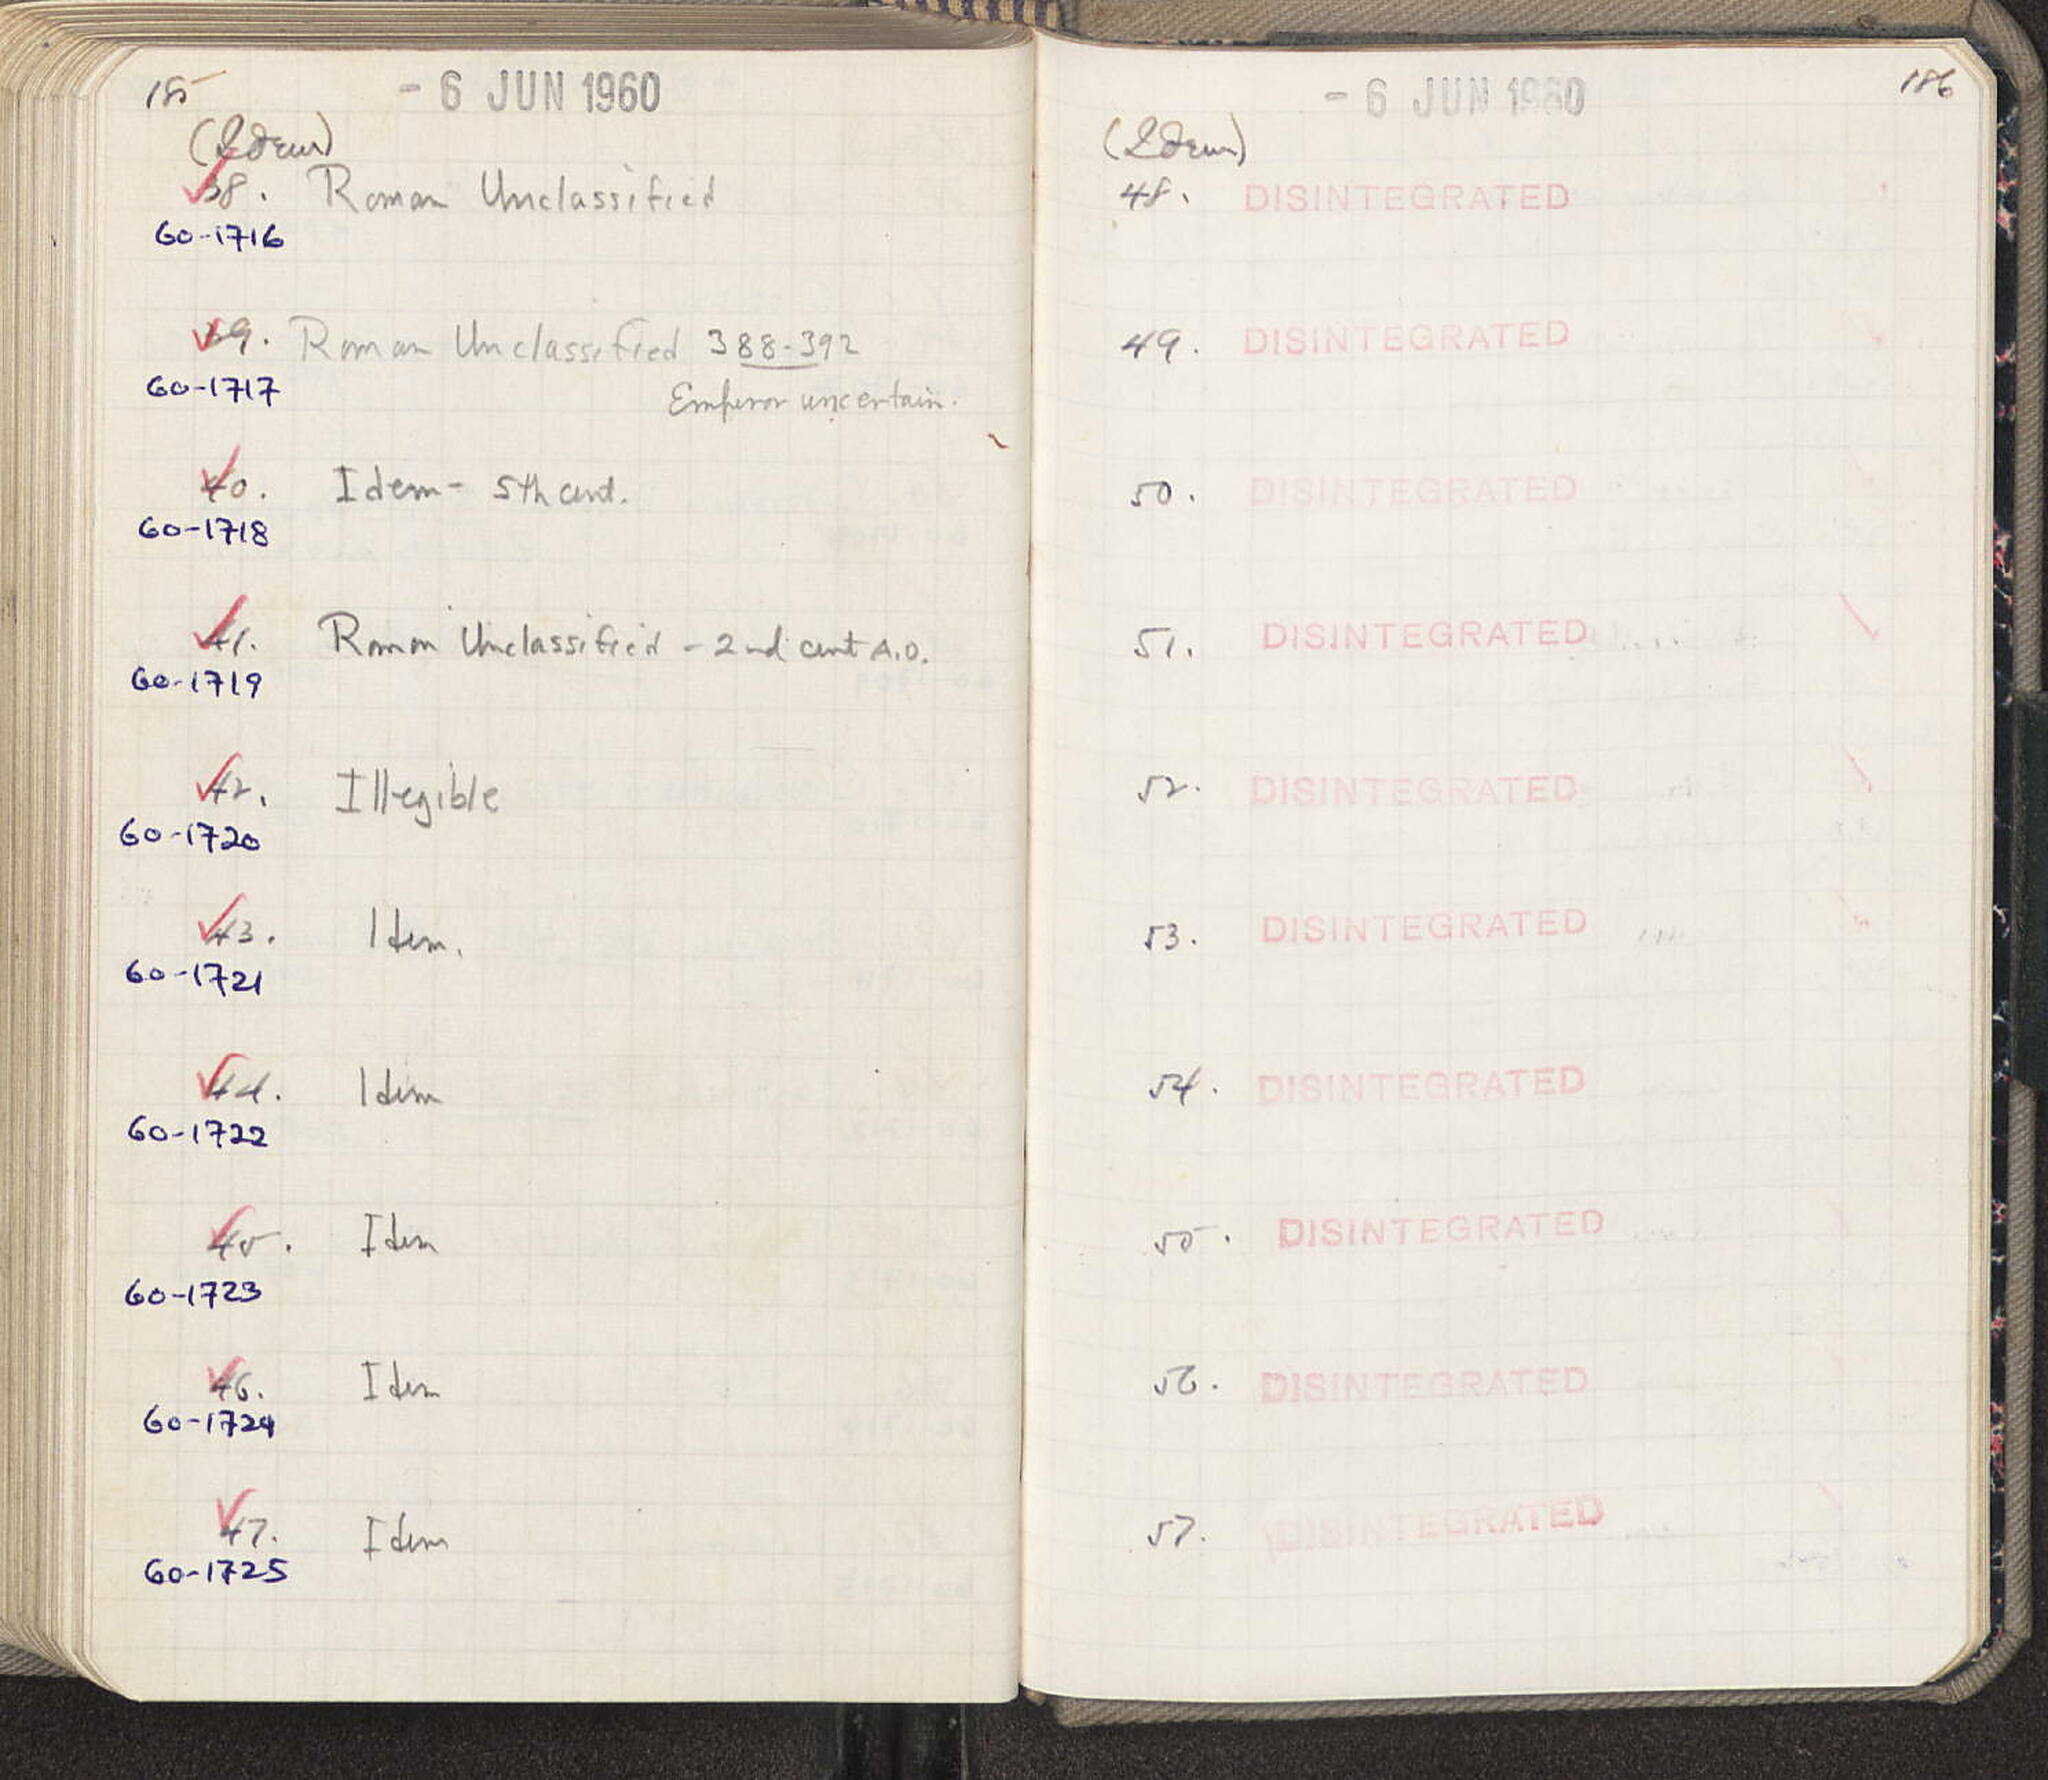 185
- 6 JUN 1960
(Idem)
38. Roman Unclassified
60-1716
39. Roman Unclassified 388-392
60-1717
Emperor uncertain.
40. Idem - 5th cent.
60-1718
41. Roman Unclassified - 2nd cent A.D.
60-1719
42. Illegible
60-1720
43. Idem.
60-1721
44. Idem
60-1722
45. Idem
60-1723
46. Idem
60-1724
47. Idem
60-1725
186
- 6 JUN 1960
(Idem)
48. DISINTEGRATED
49. DISINTEGRATED
50. DISINTEGRATED
51. DISINTEGRATED
52. DISINTEGRATED
53. DISINTEGRATED
54. DISINTEGRATED
55. DISINTEGRATED
56. DISINTEGRATED
57. DISINTEGRATED